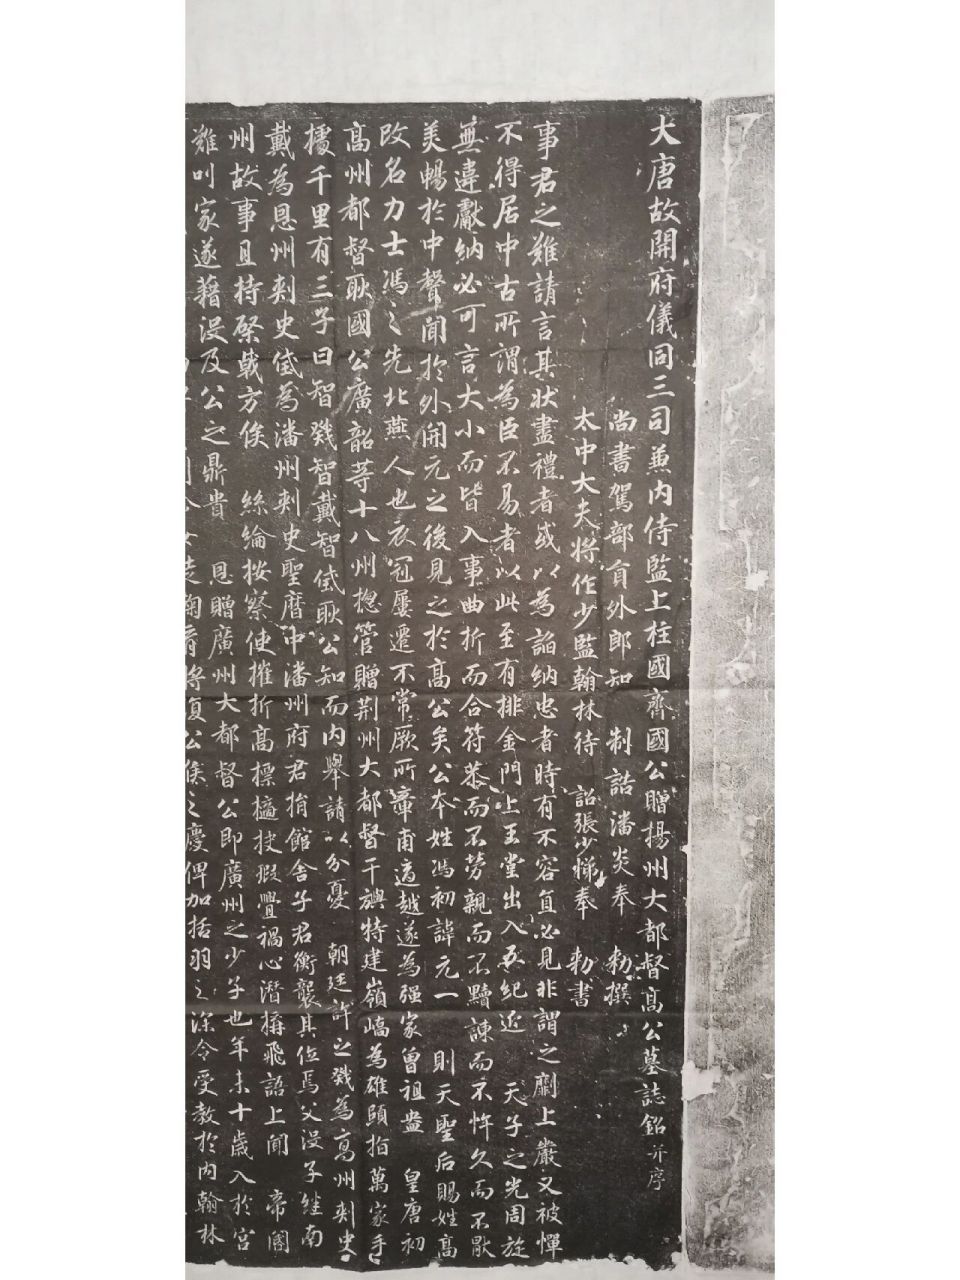 大唐故開府儀同三司兼內侍監上柱國齊國公贈揚州大都督高公墓誌銘并序
尚書駕部員外郎知 制誥潘炎奉 勅撰
太中大夫將作少監翰林待 詔張少悌奉 勅書
事君之難請言其狀盡禮者或以為諂納忠者時有不容直必見非謂之劘上嚴又被憚
不得居中古所謂為臣不易者以此至有排金門上玉堂出入五紀近 天子之光周旋
無違獻納必可言大小而皆入事曲折而合符恭而不勞親而不黷諫而不忤久而不猒
美暢於中聲聞於外開元之後見之於高公矣公本姓馮初諱元一 則天聖后賜姓高
改名力士馮之先北燕人也衣冠屢遷不常厥所章甫適越遂為强家曾祖盎 皇唐初
高州都督耿國公廣韶等十八州揔管贈荊州大都督干旟特建嶺嶠為雄頤指萬家手
據千里有三子曰智戣智戴智㦤耿公知而內舉請以分憂 朝廷許之戣為高州刺史
戴為恩州刺史㦤為潘州刺史聖曆中潘州府君捐館舍子君衡襲其位焉父沒子継南
州故事且持棨戟方俟 絲綸按察使摧折高標擿抉瑕舋禍心潛搆飛詔上聞 帝閽
難叫家遂籍沒及公之鼎貴 恩贈廣州大都督公即廣州之少子也年未十歲入於宮
將復公侯之慶俾加括羽之深令受教於內翰林